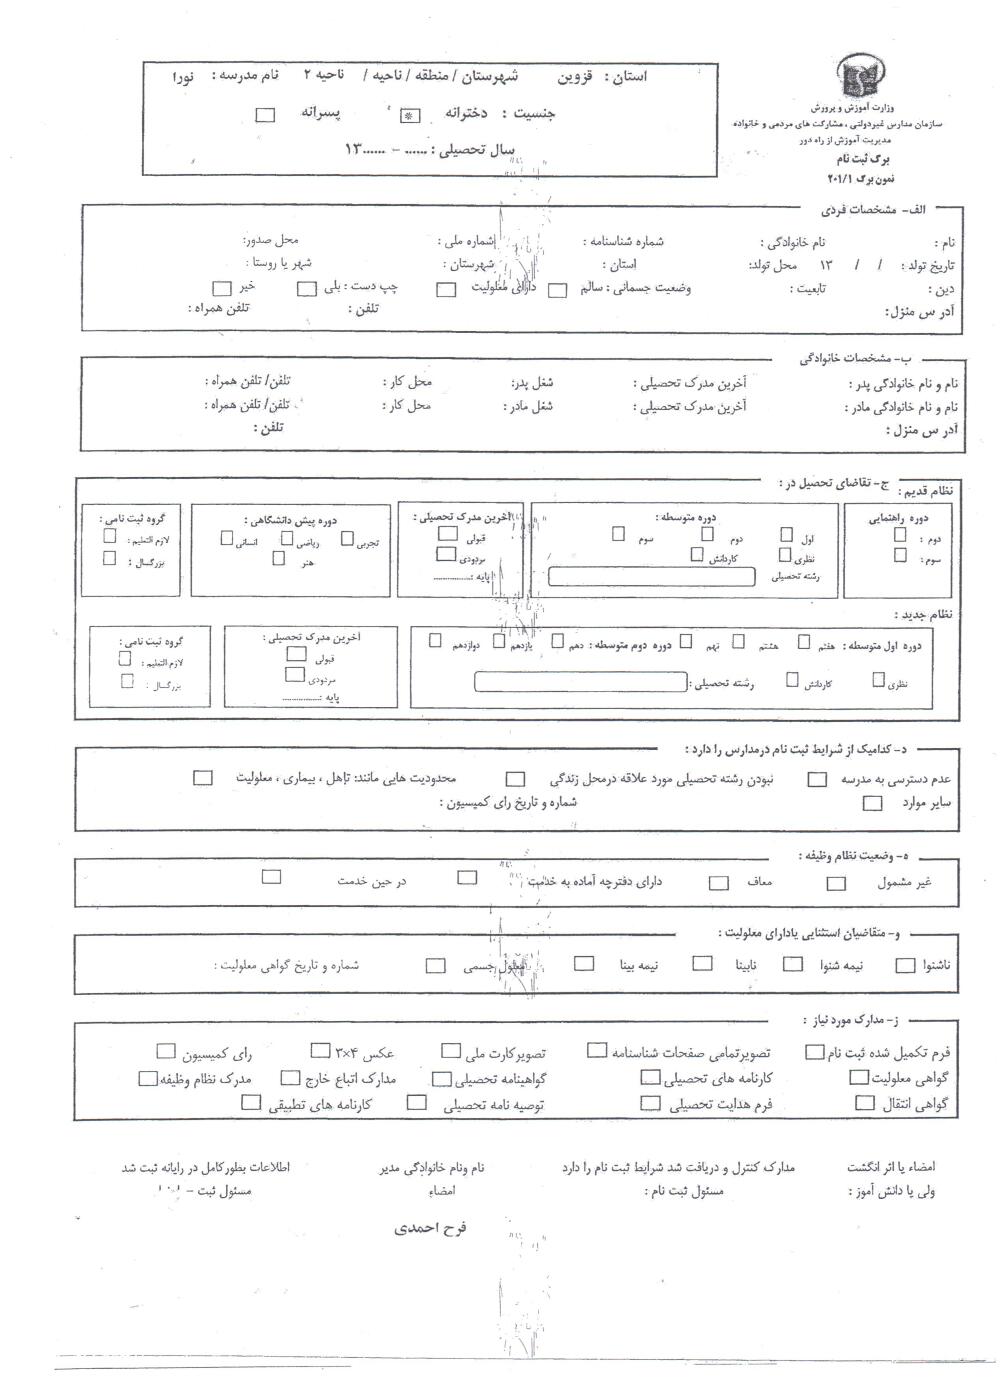 وزارت آموزش و پرورش
سازمان مدارس غیردولتی ، مشارکت های مردمی و خانواده
مدیریت آموزش از راه دور
برگ ثبت نام
نمون برگ ۲۰۱/۱
استان : قزوین شهرستان / منطقه / ناحیه / ناحیه ۲ نام مدرسه : نورا
جنسیت : دخترانه پسرانه
سال تحصیلی : ...... – ......۱۳
الف- مشخصات فردی
نام : نام خانوادگی : شماره شناسنامه : شماره ملی : محل صدور:
تاریخ تولد : / / ۱۳ محل تولد: استان : شهرستان : شهر یا روستا :
دین : تابعیت : وضعیت جسمانی : سالم دارای معلولیت چپ دست : بلی خیر
آدر س منزل: تلفن : تلفن همراه :
ب- مشخصات خانوادگی
نام و نام خانوادگی پدر : آخرین مدرک تحصیلی : شغل پدر: محل کار : تلفن/ تلفن همراه :
نام و نام خانوادگی مادر : آخرین مدرک تحصیلی : شغل مادر : محل کار : تلفن/ تلفن همراه :
آدر س منزل : تلفن :
ج- تقاضای تحصیل در :
نظام قدیم :
دوره راهنمایی
دوم :
سوم :
دوره متوسطه :
اول دوم سوم
نظری کاردانش
رشته تحصیلی
آخرین مدرک تحصیلی :
قبولی
مردودی
پایه :...............
دوره پیش دانشگاهی :
تجربی ریاضی انسانی
هنر
گروه ثبت نامی :
لازم التعلیم :
بزرگسال :
نظام جدید :
دوره اول متوسطه : هفتم هشتم نهم دوره دوم متوسطه : دهم یازدهم دوازدهم
نظری کاردانش رشته تحصیلی :
آخرین مدرک تحصیلی :
قبولی
مردودی
پایه :...............
گروه ثبت نامی :
لازم التعلیم :
بزرگسال :
د- کدامیک از شرایط ثبت نام درمدارس را دارد :
عدم دسترسی به مدرسه نبودن رشته تحصیلی مورد علاقه درمحل زندگی محدودیت هایی مانند: تأهل ، بیماری ، معلولیت
سایر موارد شماره و تاریخ رای کمیسیون :
ه- وضعیت نظام وظیفه :
غیر مشمول معاف دارای دفترچه آماده به خدمت در حین خدمت
و- متقاضیان استثنایی یادارای معلولیت :
ناشنوا نیمه شنوا نابینا نیمه بینا معلول جسمی شماره و تاریخ گواهی معلولیت :
ز- مدارک مورد نیاز :
فرم تکمیل شده ثبت نام تصویرتمامی صفحات شناسنامه تصویرکارت ملی عکس ۴×۳ رای کمیسیون
گواهی معلولیت کارنامه های تحصیلی گواهینامه تحصیلی مدارک اتباع خارج مدرک نظام وظیفه
گواهی انتقال فرم هدایت تحصیلی توصیه نامه تحصیلی کارنامه های تطبیقی
امضاء یا اثر انگشت مدارک کنترل و دریافت شد شرایط ثبت نام را دارد نام ونام خانوادگی مدیر اطلاعات بطورکامل در رایانه ثبت شد
ولی یا دانش آموز : مسئول ثبت نام : امضاء مسئول ثبت –
فرح احمدی